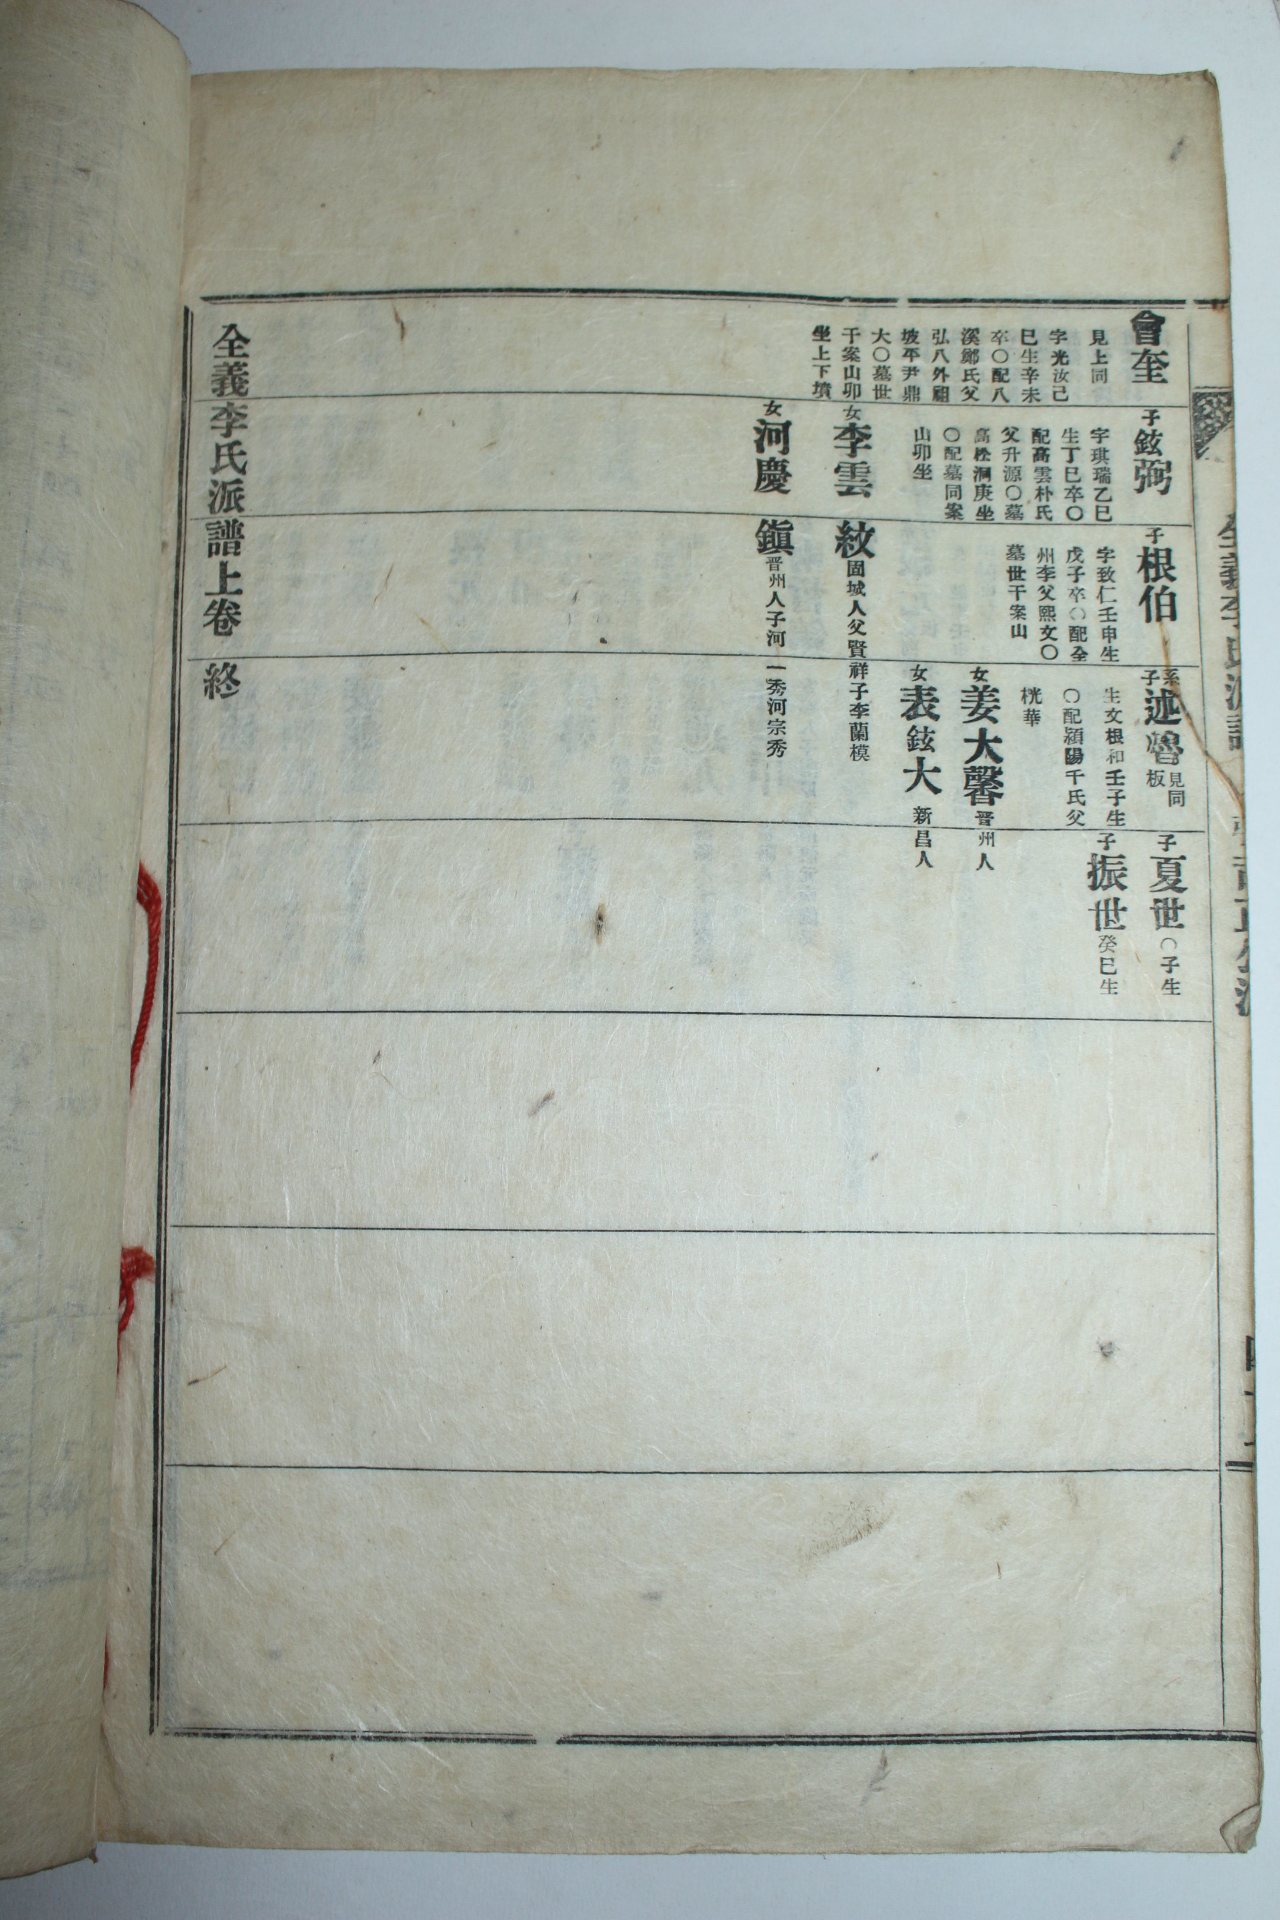 會奎
見上同
字光汝己
巳生辛未
卒〇配八
溪鄭氏父
弘八外祖
坡平尹鼎
大〇墓世
于案山卯
坐上下墳
子鉉弼
字琪瑞乙巳
生丁巳卒〇
配高雲朴氏
父升源〇墓
高松洞庚坐
〇配墓同案
山卯坐
女李雲紋固城人父賢祥子李蘭模
女河慶鎭晋州人子河一秀河宗秀
子根伯
字致仁壬申生
戊子卒〇配全
州李父熙文〇
墓世干案山
系子述魯見同板
生文根和壬子生
〇配潁陽千氏父
桄華
女姜大馨晋州人
女表鉉大新昌人
子夏世〇子生
子振世癸巳生
全義李氏派譜上卷 終
全義李氏派譜